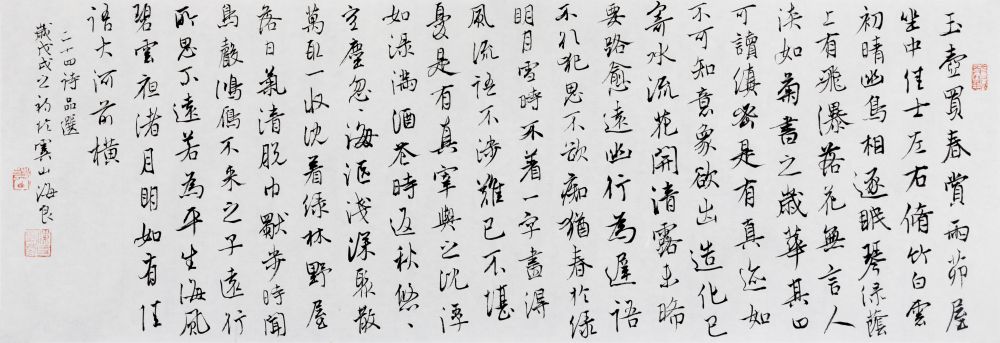 玉壺買春賞雨茆屋
坐中佳士左右脩竹白雲
初晴幽鳥相逐眠琴綠蔭
上有飛瀑落花無言人
淡如菊書之歲華其曰
可讀縝密是有真迹如
不可知意象欲出造化已
奇水流花開清露未晞
要路愈遠幽行為遲語
不欲犯思不欲痴猶春於綠
明月雪時不着一字盡得
風流語不涉難已不堪
憂是有真宰與之沈浮
如淥滿酒花時返秋悠、
空塵忽海漚淺深聚散
萬取一收沈着綠林野屋
落日氣清脫巾獨步時聞
鳥聲鴻鴈不來之子遠行
所思不遠若為平生海風
碧雲夜渚月明如有佳
語大河前橫
二十四詩品選
歲戊戌之初於雲山海良